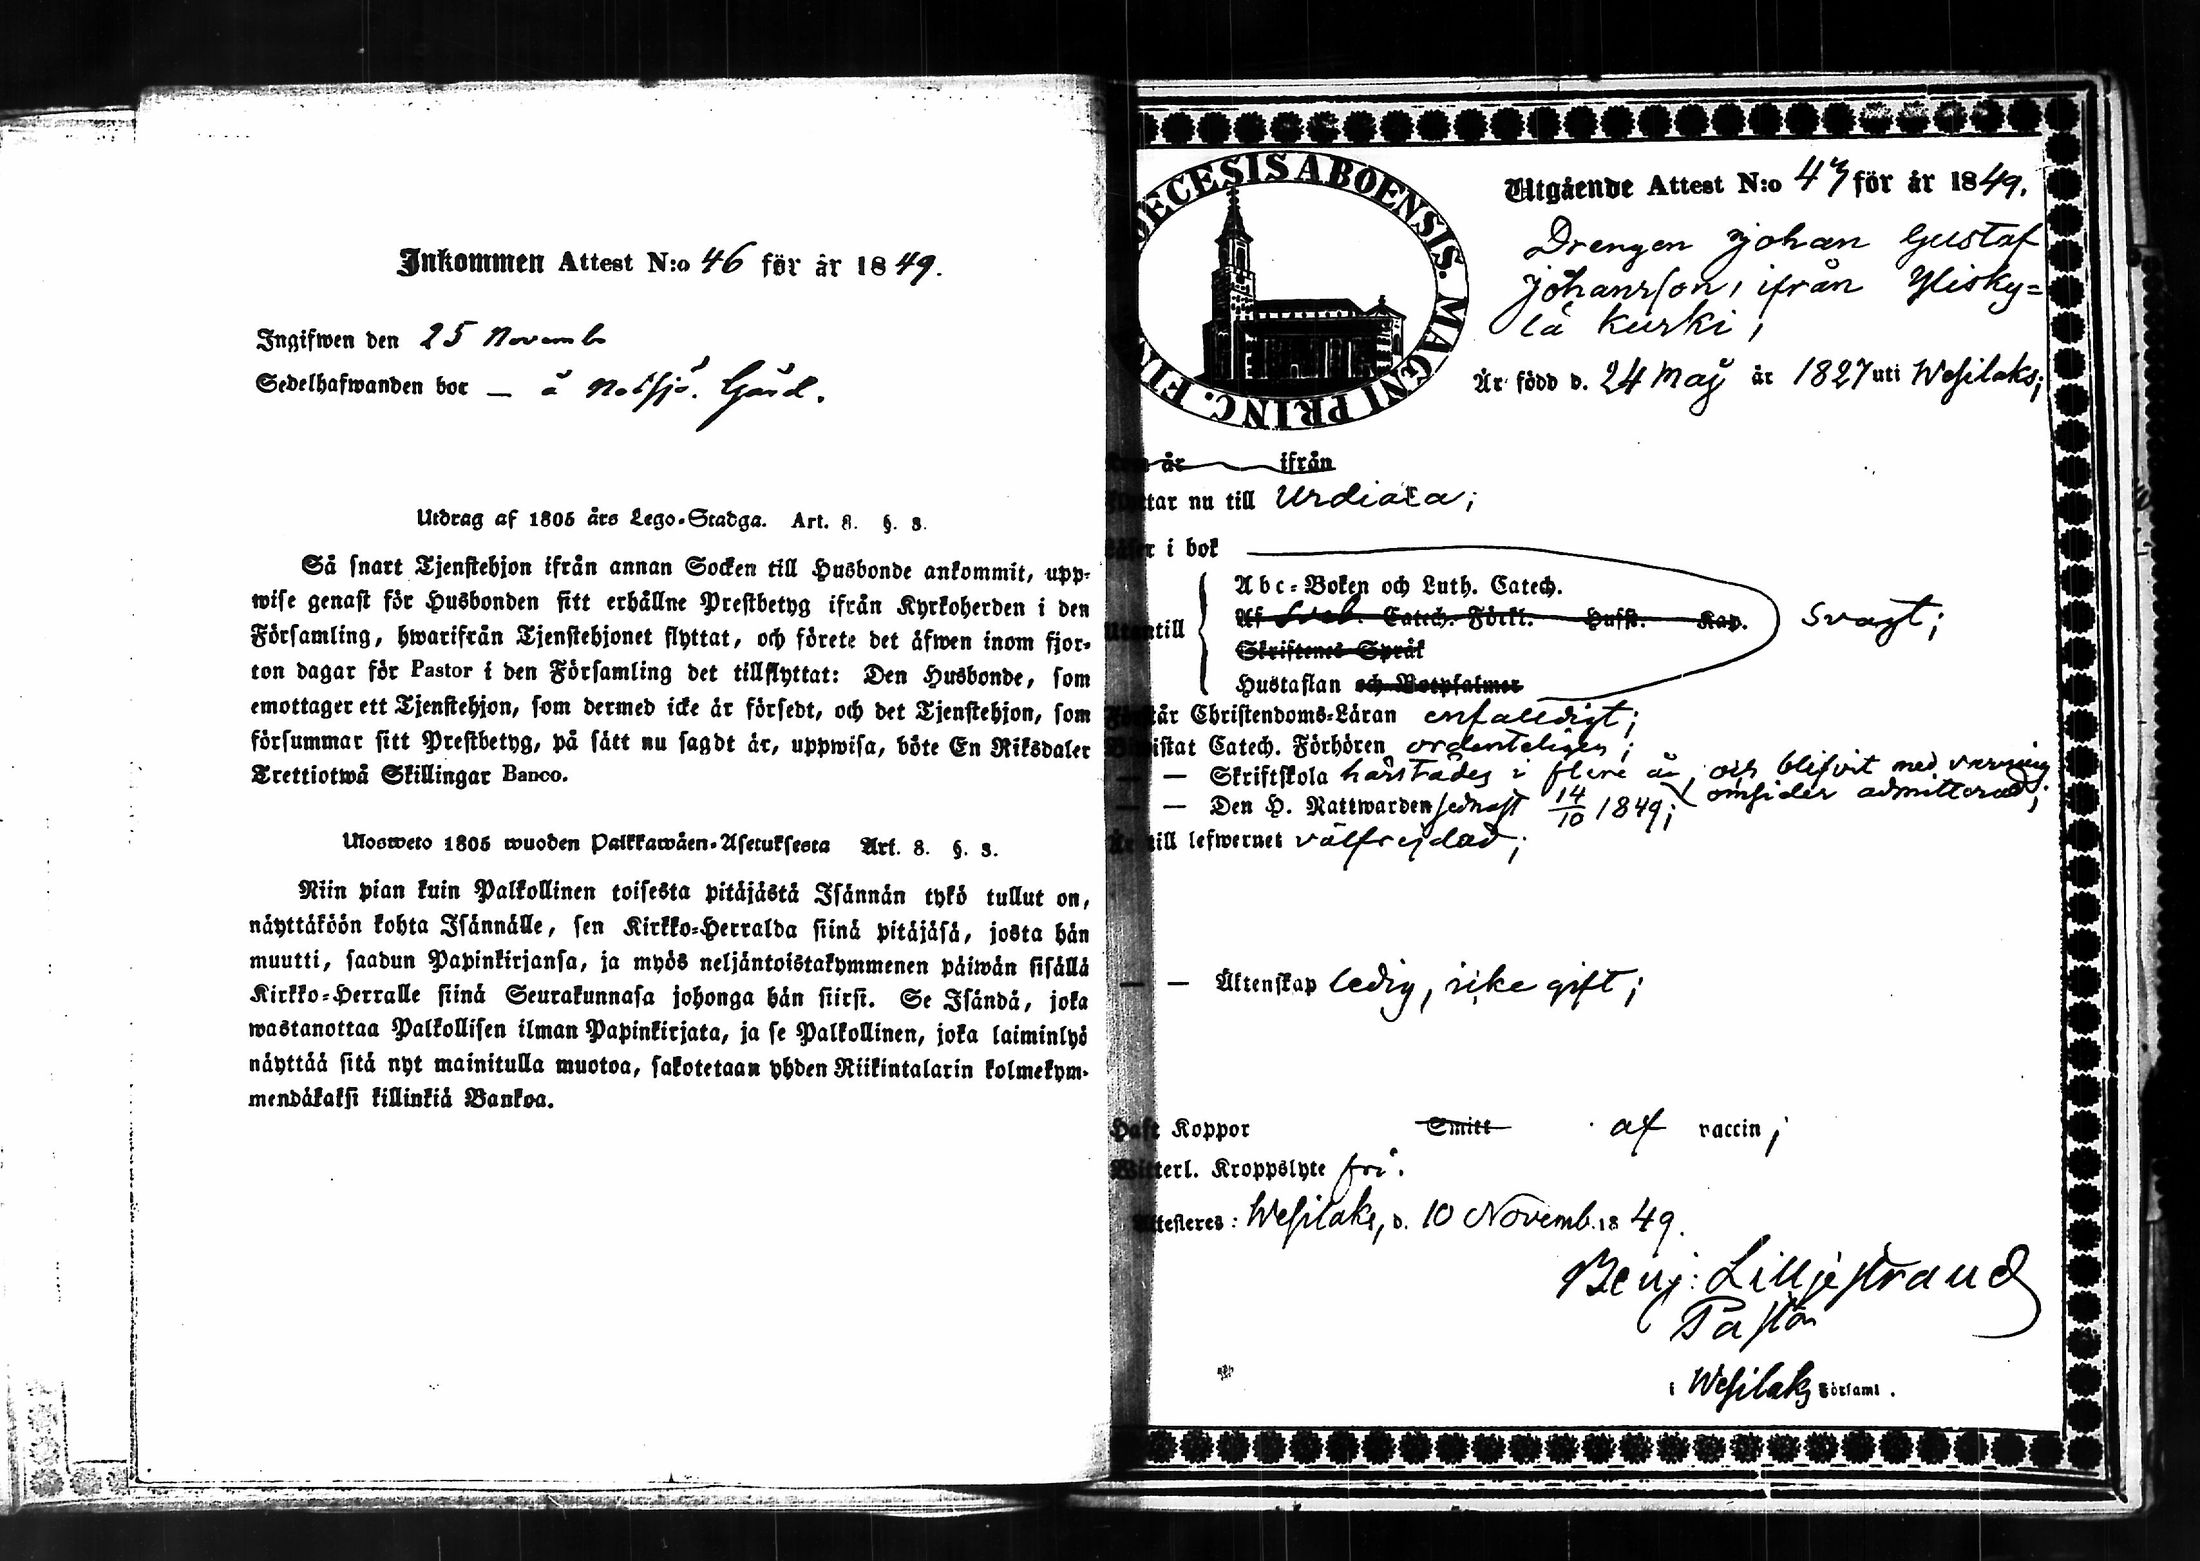 Inkommen Attest N:o 46 för år 1849.
Ingifwen den 25 Novemb
Sedelhafwanden bor — å Notsjö. Gård.
Utdrag af 1805 års Lego-Stadga. Art. 8. §. 3.
Så snart Tjenstehjon ifrån annan Socken till Husbonde ankommit, upp-
wise genast för Husbonden sitt erhållne Prestbetyg ifrån Kyrkoherden i den
Församling, hwarifrån Tjenstehjonet flyttat, och förete det äfwen inom fjor-
ton dagar för Pastor i den Församling det tillflyttat: Den Husbonde, som
emottager ett Tjenstehjon, som dermed icke är försedt, och det Tjenstehjon, som
försummar sitt Prestbetyg, på sätt nu sagdt är, uppwisa, böte En Riksdaler
Trettiotwå Skillingar Banco.
Ulosweto 1805 wuoden Palkkawäen-Asetuksesta Art. 8. §. 3.
Niin pian kuin Palkollinen toisesta pitäjästä Isännän tykö tullut on,
näyttäköön kohta Isännälle, sen Kirkko-Herralda siinä pitäjäsä, josta hän
muutti, saadun Papinkirjansa, ja myös neljäntoistakymmenen päiwän sisällä
Kirkko-Herralle siinä Seurakunnasa johonga hän siirsi. Se Isändä, joka
wastanottaa Palkollisen ilman Papinkirjata, ja se Palkollinen, joka laiminlyö
näyttää sitä nyt mainitulla muotoa, sakotetaan yhden Riikintalarin kolmekym-
mendäkaksi killinkiä Bankoa.
DECESIS ABOENSIS. MAGNI PRINC. FIN
Utgående Attest N:o 47 för år 1849.
Drengen Johan Gustaf
Johansson, ifrån Ylisky=
lä Kurki,
Är född d. 24 Maij år 1827 uti Wesilaks;
Kom år ifrån
Flyttar nu till Urdiala;
Läser i bok
Abc-Boken och Luth. Catech.
Af Sveb. Catech. Förkl. Husst. Kap.
Utantill svagt;
Skriftenes Språk
Hustaflan och Botpsalmer
Förstår Christendoms-Läran enfaldigt;
Biwistat Catech. Förhören ordenteligen;
— — Skriftskola härstädes i flere år, och blifvit med varning
omsider admitterad;
— — Den H. Nattwarden sednast 14/10 1849;
Är till lefwernet välfrejdad;
— — Äktenskap ledig, icke gift;
Haft Koppor Smitt af vaccin;
Witterl. Kroppslyte fri.
Attesteres: Wesilaks, d. 10 Novemb. 1849.
Benj: Lilljestrand
Pastor
i Wesilaks Församl.